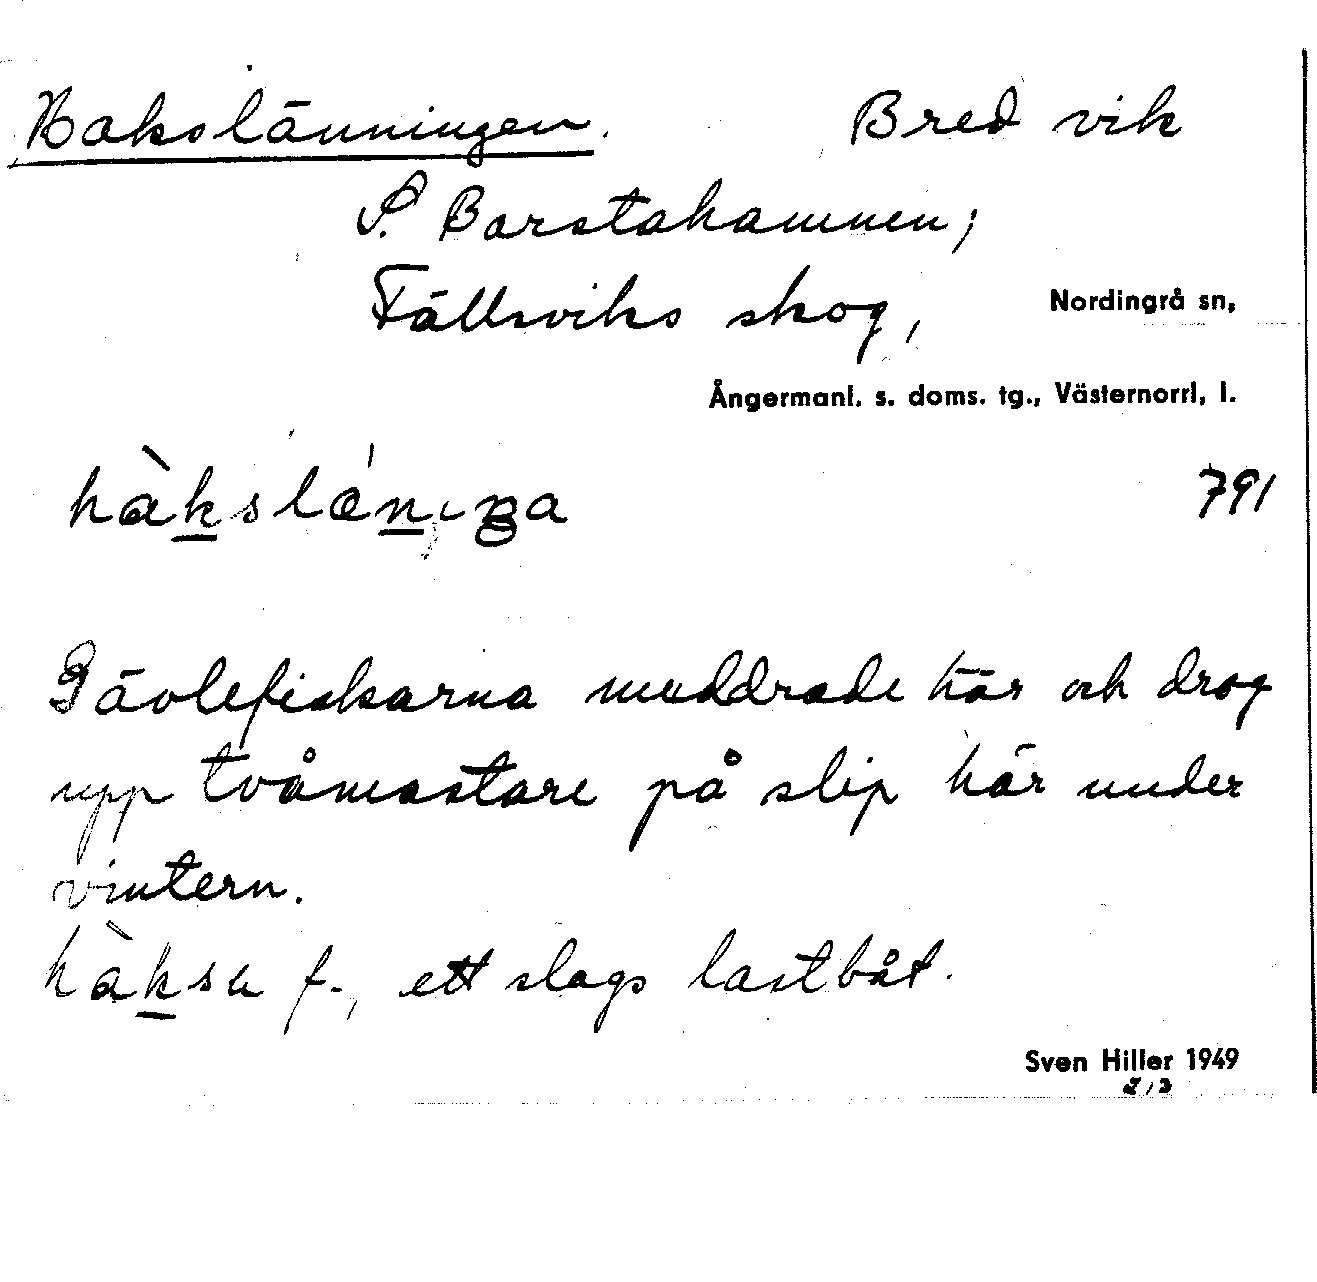 Hakslänningen. Bred vik
S. Barstahamnen;
Fällsviks skog, Nordingrå sn,
Ångermanl. s. doms. tg., Västernorrl, l.
hàkslǽniŋa 791
Gävlefiskarna muddrade här och drog
upp tvåmastare på slip här under
vintern.
hàksa f., ett slags lastbåt.
Sven Hiller 1949